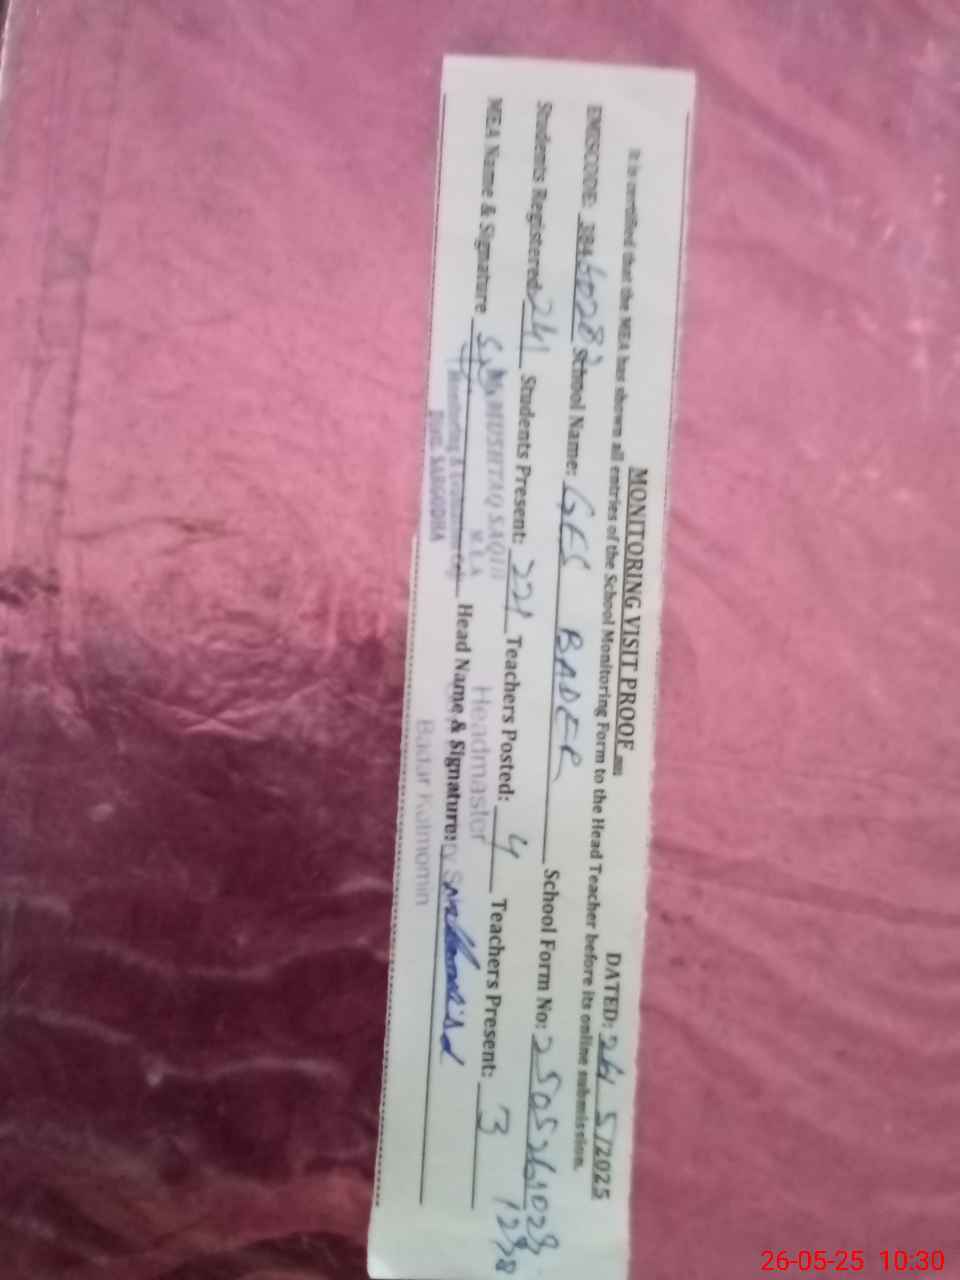 MONITORING VISIT PROOF
DATED: 26/ 5 /2025
It is certified that the MEA has shown all entries of the School Monitoring Form to the Head Teacher before its online submission.
EMISCODE: 384 School Name: GES BADER School Form No: 2505261028
1278
Students Registered 241 Students Present: 221 Teachers Posted: 4 Teachers Present: 3
MEA Name & Signature Head Name & Signature:
MUSHTAQ SAQIB
M.E.A
Monitoring &
Distt. SARGODHA
Headmaster
Badar Kotmomin
26-05-25 10:30